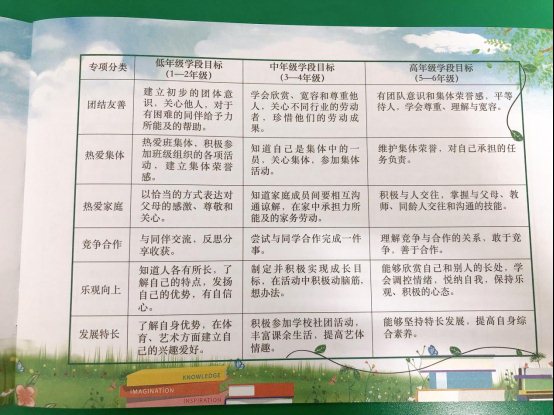 专项分类
低年级学段目标
(1—2年级)
中年级学段目标
(3—4年级)
高年级学段目标
(5—6年级)
团结友善
建立初步的团体意
识，关心他人，对于
有困难的同伴给予力
所能及的帮助。
学会欣赏、宽容和尊重他
人，关心不同行业的劳动
者，珍惜他们的劳动成
果。
有团队意识和集体荣誉感，平等
待人，学会尊重、理解与宽容。
热爱集体
热爱班集体，积极参
加班级组织的各项活
动，建立集体荣誉
感。
知道自己是集体中的一
员，关心集体，参加集体
活动。
维护集体荣誉，对自己承担的任
务负责。
热爱家庭
以恰当的方式表达对
父母的感激、尊敬和
关心。
知道家庭成员间要相互沟
通谅解，在家中承担力所
能及的家务劳动。
积极与人交往，掌握与父母、教
师、同龄人交往和沟通的技能。
竞争合作
与同伴交流，反思分
享收获。
尝试与同学合作完成一件
事。
理解竞争与合作的关系，敢于竞
争，善于合作。
乐观向上
知道人各有所长，了
解自己的特点，发扬
自己的优势，有自信
心。
制定并积极实现成长目
标，在活动中积极动脑筋
想办法。
能够欣赏自己和别人的长处，学
会调控情绪，悦纳自我，保持乐
观、积极的心态。
发展特长
了解自身优势，在体
育、艺术方面建立自
己的兴趣爱好。
积极参加学校社团活动，
丰富课余生活，提高艺体
情趣。
能够坚持特长发展，提高自身综
合素养。
KNOWLEDGE
IMAGINATION
INSPIRATION